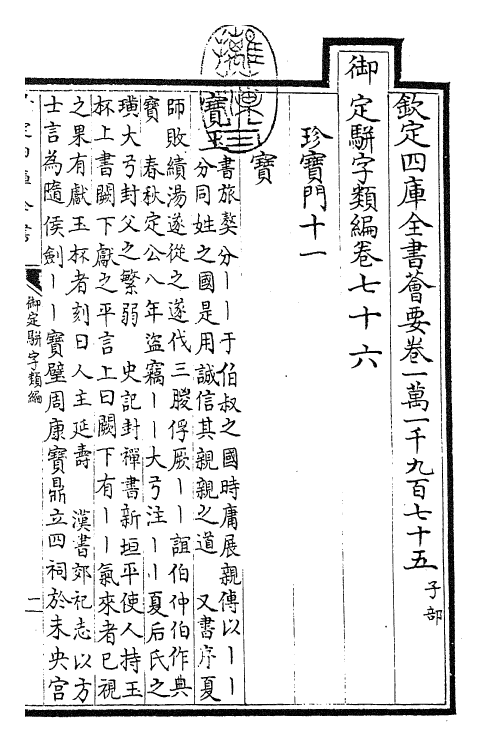 欽定四庫全書薈要卷一萬一千九百七十五 子部
御定駢字類編卷七十六
珍寶門十一
寶
寶玉 書旅獒分丨丨于伯叔之國時庸展親傳以丨丨
分同姓之國是用誠信其親親之道 又書序夏
師敗績湯遂從之遂伐三朡俘厥丨丨誼伯仲伯作典
寶 春秋定公八年盜竊丨丨大弓注丨丨夏后氏之
璜大弓封父之繁弱 史記封禪書新垣平使人持玉
杯上書闕下獻之平言上曰闕下有丨丨氣來者已視
之果有獻玉杯者刻曰人主延壽 漢書郊祀志以方
士言為隨侯劍丨丨寶璧周康寶鼎立四祠於未央宮
御定駢字類編
一